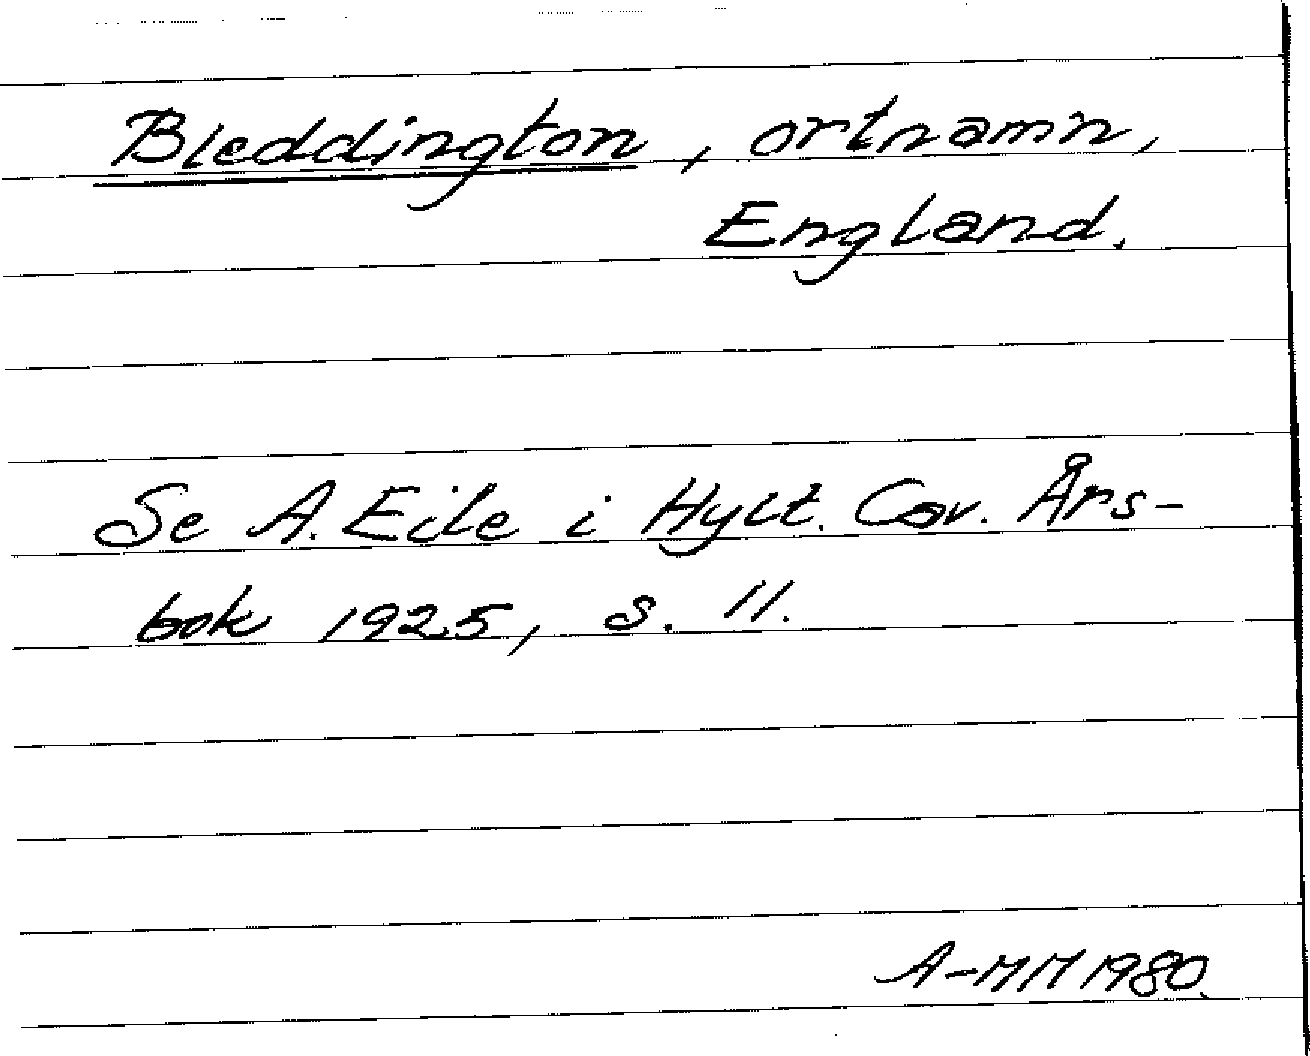 Bleddington, ortnamn,
England.
Se A. Eile i Hylt. Cav. Års-
bok 1925, s. 11.
A-MM 1980.